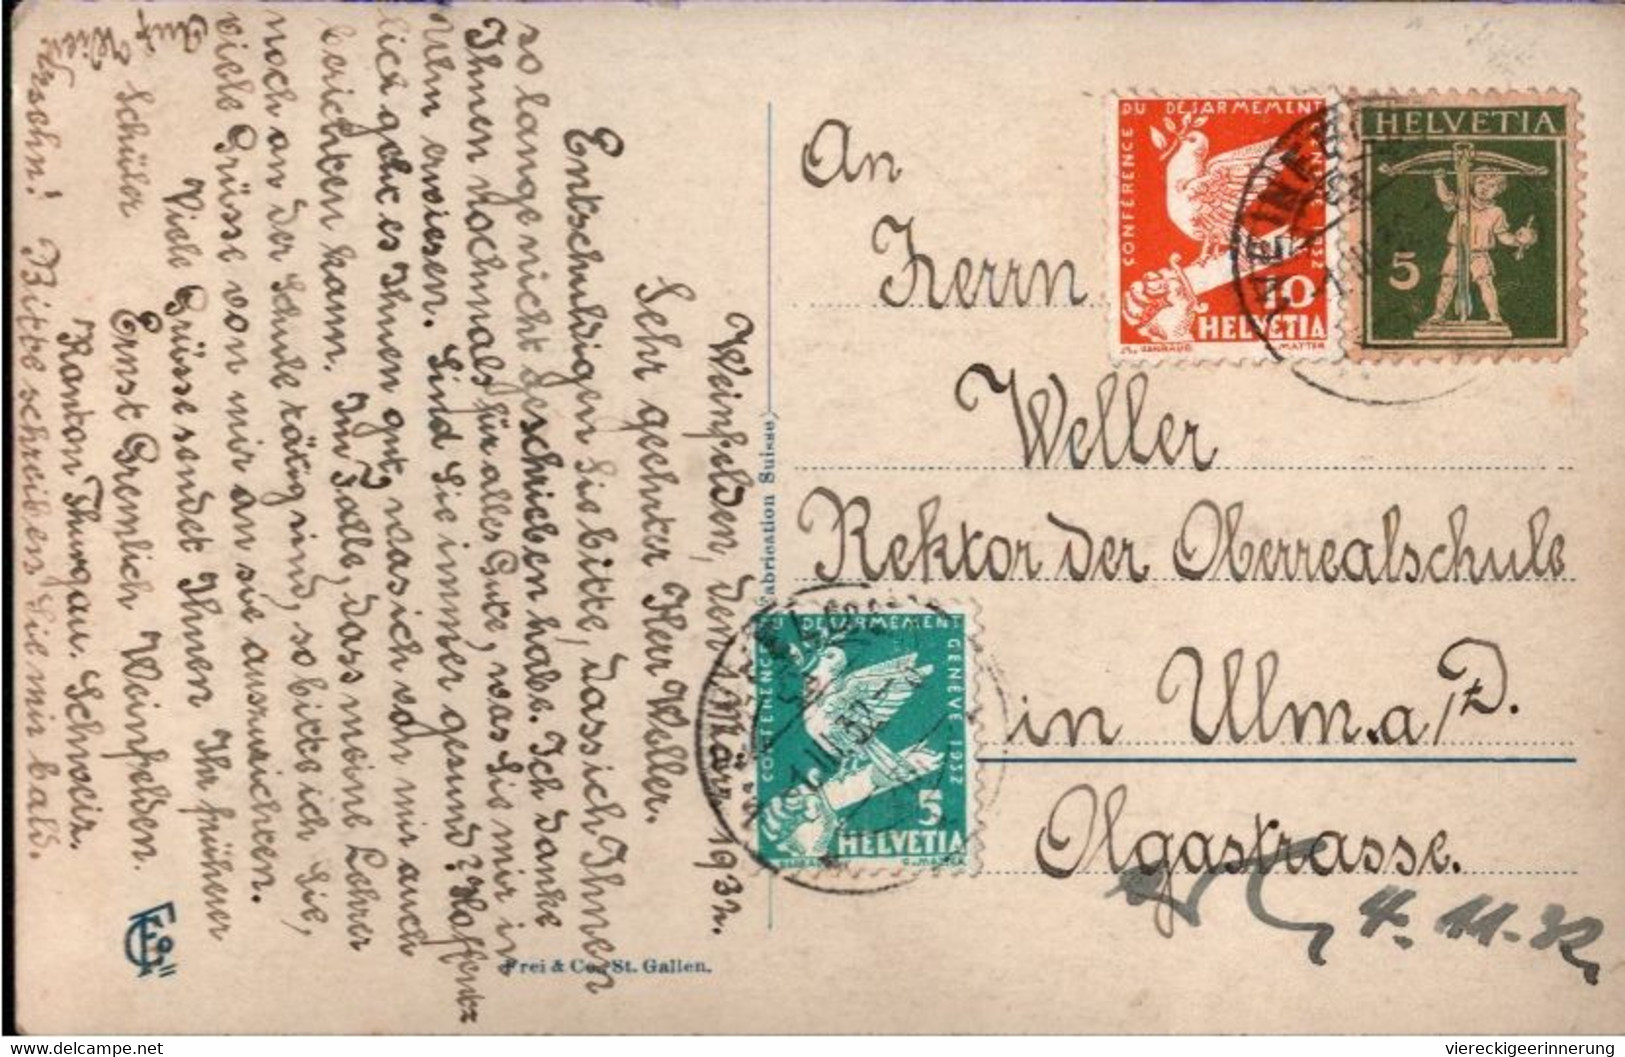 Weinfelden, den 1. März 1932.
Sehr geehrter Herr Weller.
Entschuldigen Sie bitte, dass ich Ihnen
so lange nicht geschrieben habe. Ich danke
Ihnen nochmals für alles Gute, was Sie mir in
Ulm erwiesen. Sind Sie immer gesund? Hoffent
lich geht es Ihnen gut, was ich von mir auch
berichten kann. Im Falle, dass meine Lehrer
noch an der Schule tätig sind, so bitte ich Sie,
viele Grüsse von mir an sie ausrichten.
Viele Grüsse sendet Ihnen Ihr früherer
Schüler Ernst Gremlich Weinfelden.
Kanton Thurgau. Schweiz.
Auf Wieder
sehn! Bitte schreiben Sie mir bald.
Fabrication Suisse
Frei & Co., St. Gallen.
An
Herrn
Weller
Rektor der Oberrealschule
in Ulm. a/D.
Olgastrasse.
4. 11. 32.
CONFÉRENCE DU DÉSARMEMENT GENÈVE 1932
10
HELVETIA
HELVETIA
5
CONFÉRENCE DU DÉSARMEMENT GENÈVE 1932
5
HELVETIA
WEINFELDEN
1.III.32
delcampe.net
viereckigeerinnerung